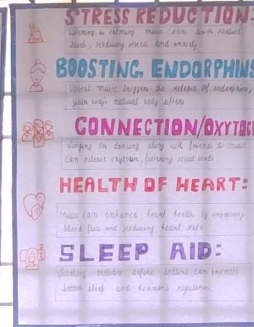 STRESS REDUCTION:
Listening to calming music can lower cortisol
levels, reducing stress and anxiety
BOOSTING ENDORPHINS
Upbeat music triggers the release of endorphins,
your body's natural body lifters
CONNECTION/OXYTOC
Singing or dancing along with friends to music
can release oxytocin, forming social bonds
HEALTH OF HEART:
Music can enhance heart health by improving
blood flow and reducing heart rate
SLEEP AID:
Soothing melodies before bedtime can promote
better sleep and hormone regulation